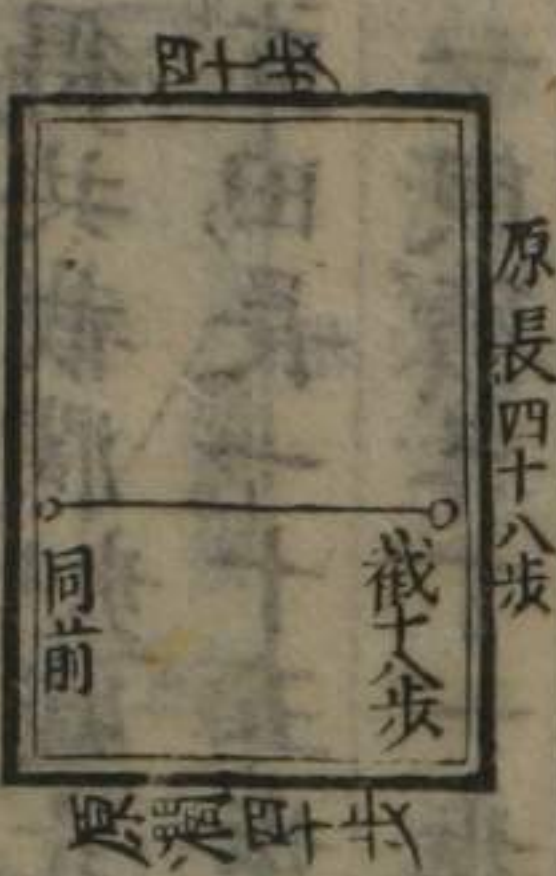 四十步
原長四十八步
截十八步
同前
原濶四十步